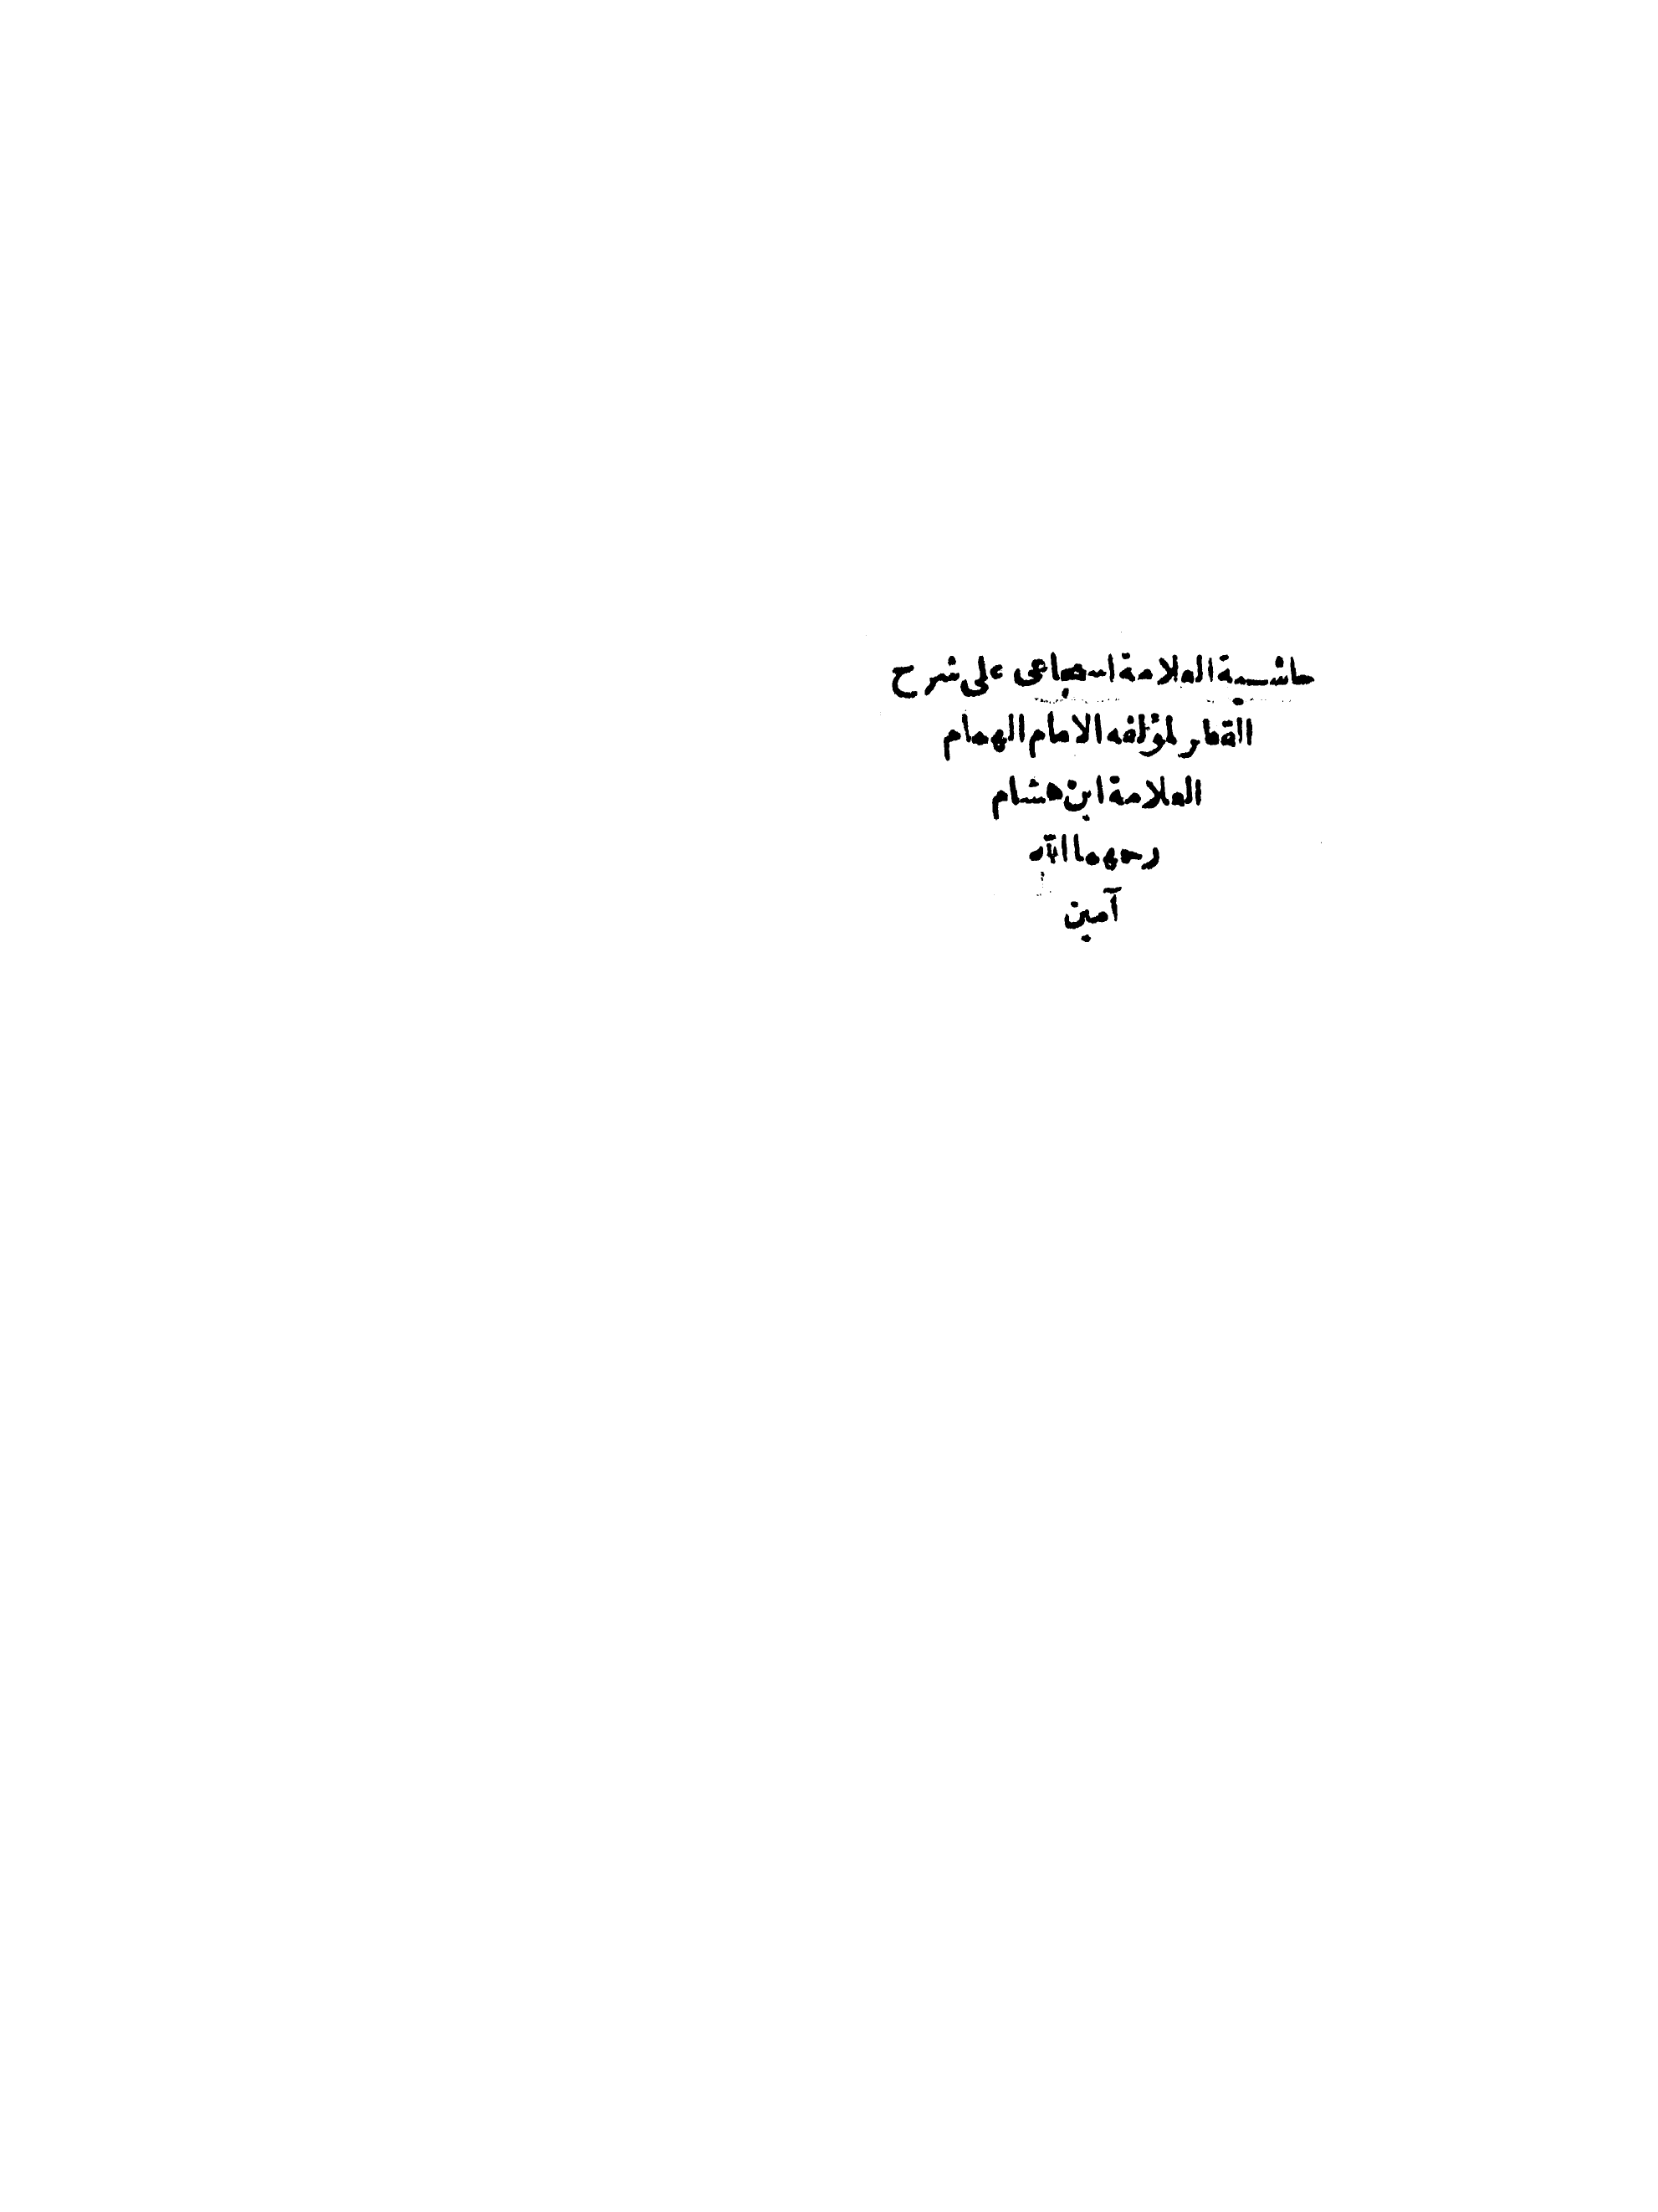 حاشية العلامة السجاعى على شرح
القطر لمؤلفه الامام الهمام
العلامة ابن هشام
رحمهما الله
آمين